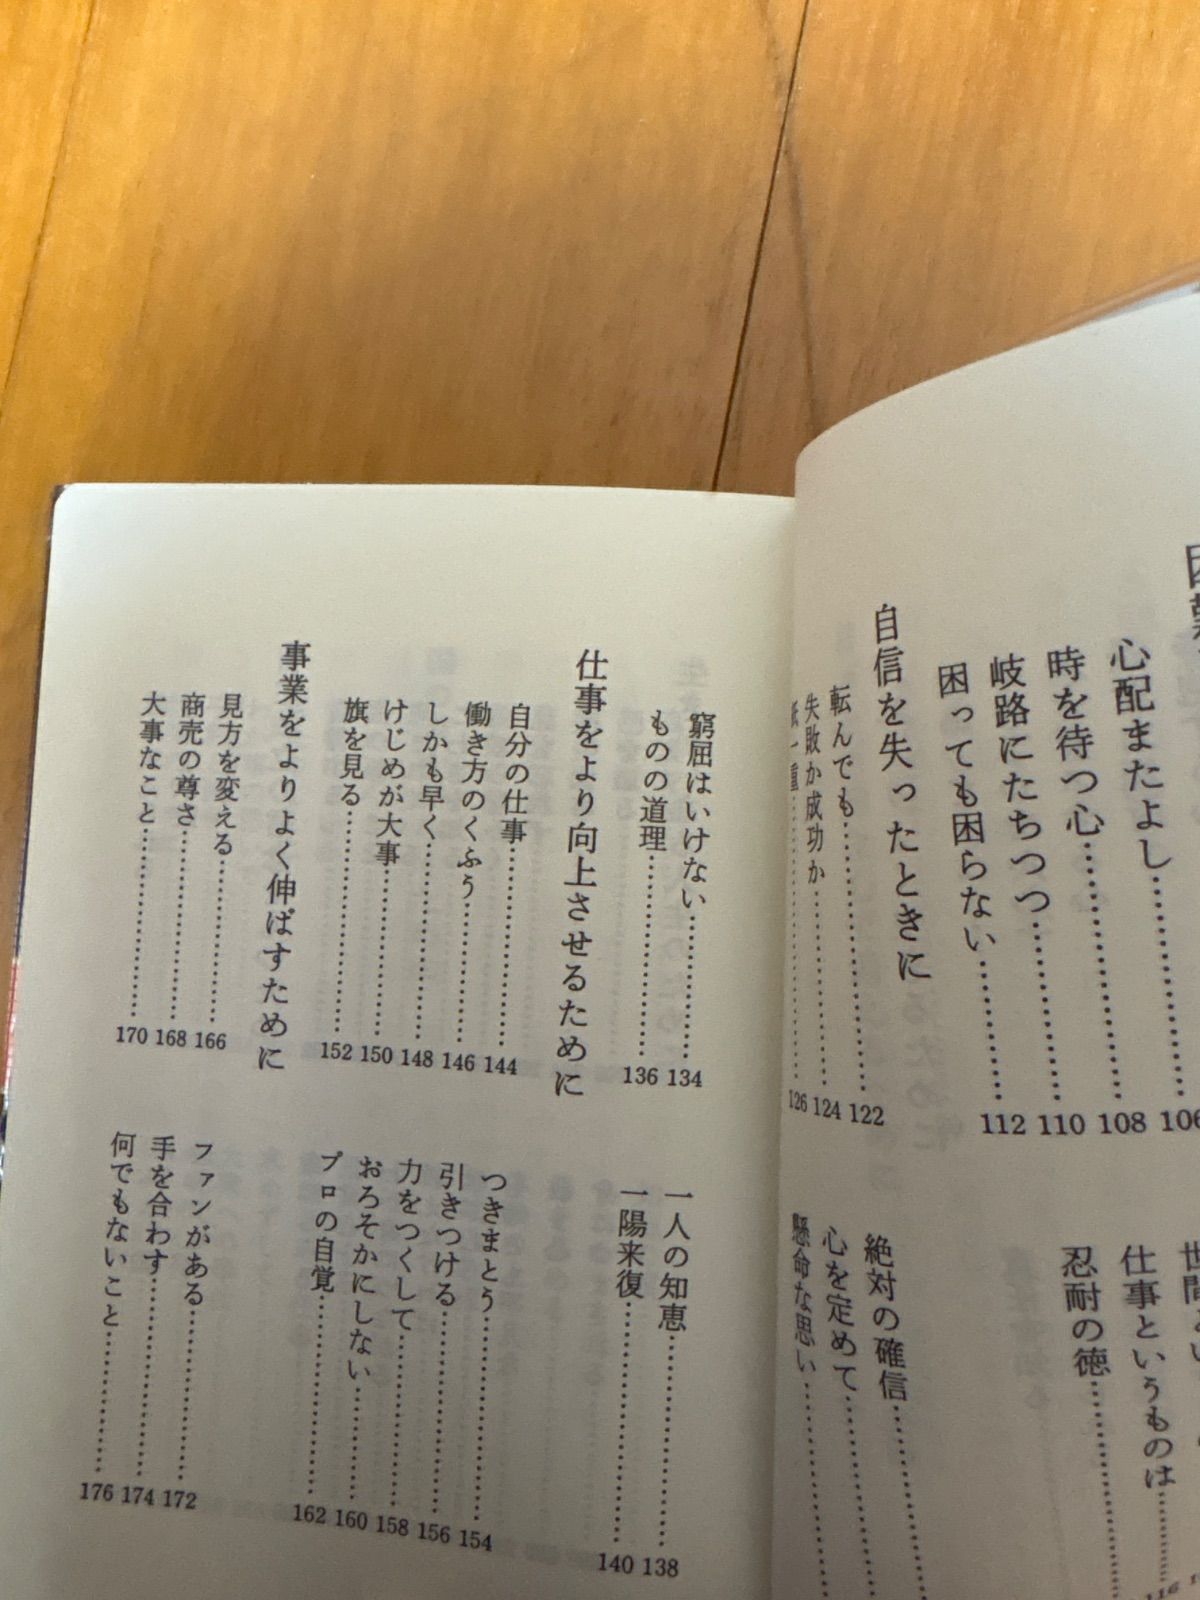 心配またよし……………106
時を待つ心……………108
岐路にたちつつ……………110
困っても困らない……………112
世間と
仕事というものは……………116
忍耐の徳……………
自信を失ったときに
転んでも……………122
失敗か成功か……………124
紙一重……………126
絶対の確信……………
心を定めて……………
懸命な思い……………
窮屈はいけない……………134
ものの道理……………136
一人の知恵……………138
一陽来復……………140
仕事をより向上させるために
自分の仕事……………144
働き方のくふう……………146
しかも早く……………148
けじめが大事……………150
旗を見る……………152
つきまとう……………154
引きつける……………156
力をつくして……………158
おろそかにしない……………160
プロの自覚……………162
事業をよりよく伸ばすために
見方を変える……………166
商売の尊さ……………168
大事なこと……………170
ファンがある……………172
手を合わす……………174
何でもないこと……………176